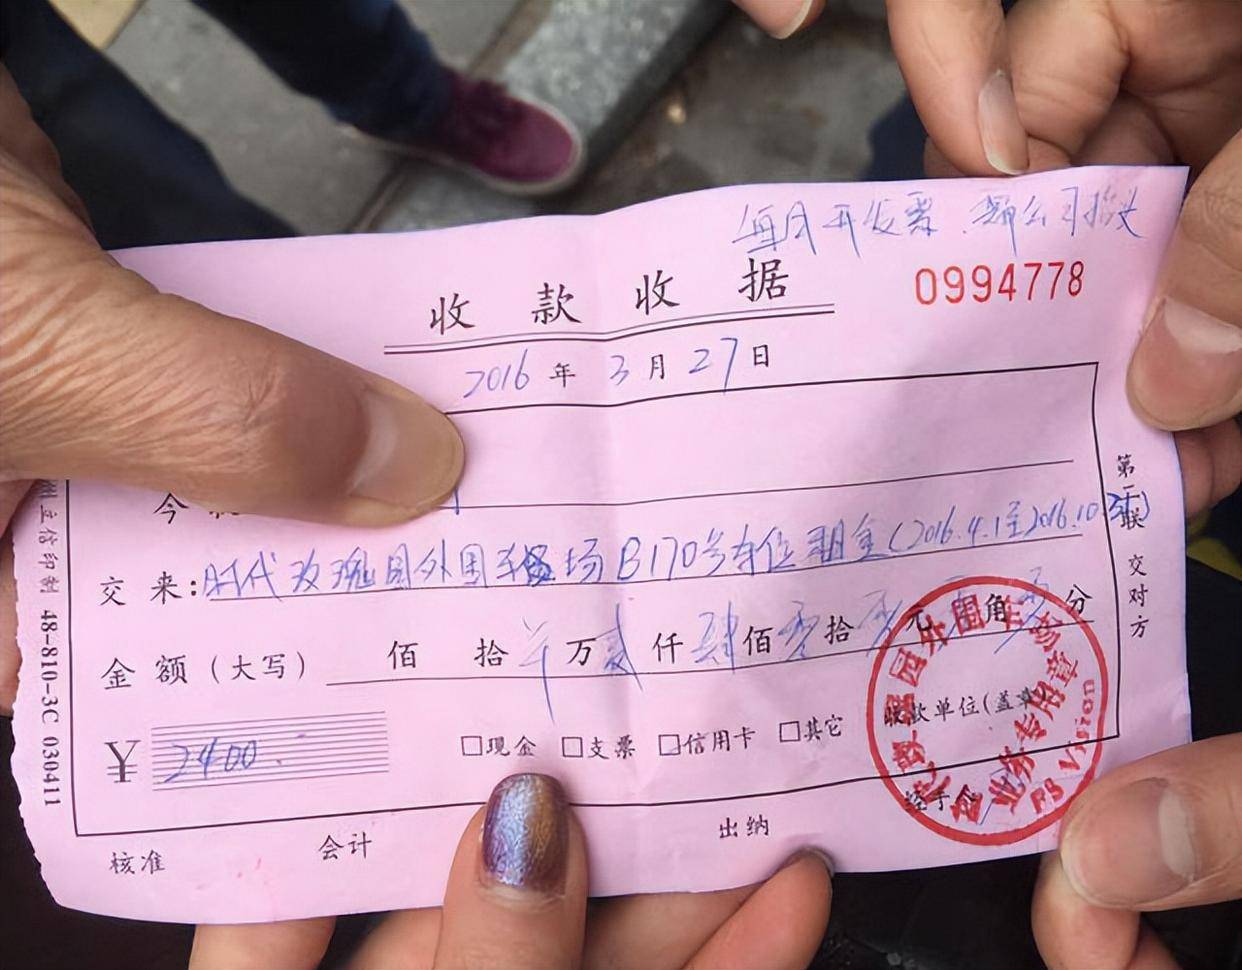 每月开发票.
公司抬头
收款收据
0994778
2016年3月27日
今
交来:时代玫瑰园外围车场B170号车位租金(2016.4.1至2016.10.31)
金额(大写) 佰 拾 万贰仟肆佰零拾零元零角零分
¥2400.
□现金 □支票 □信用卡 □其它
收款单位(盖章)
经手
核准 会计 出纳
第一联 交对方
立信印制 48-810-3C 030411
玫瑰园外围车场
业务专用章